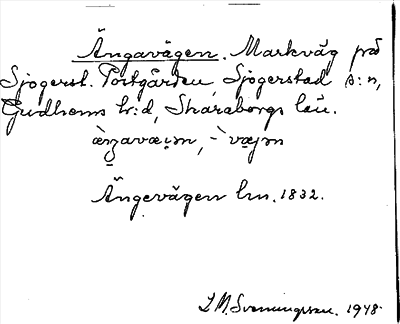 Ängavägen. Markväg på
Sjögerst. Torpgården, Sjögerstad s:n,
Gudhems hr:d, Skaraborgs län.
Ängevägen lm. 1832.
J M Svenningsson. 1948